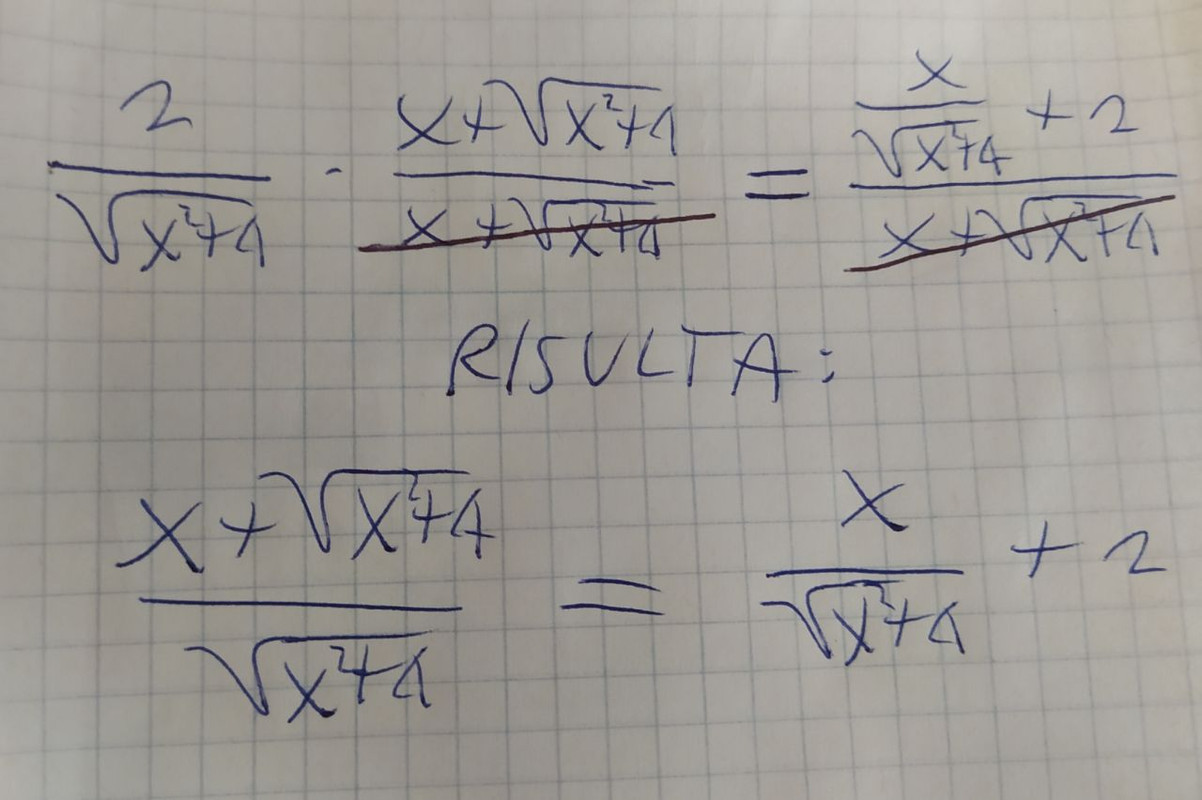 2/√(x²+4) · (x+√(x²+4))/(x+√(x²+4)) = (x/√(x²+4) + 2)/(x+√(x²+4))
RISULTA:
(x+√(x²+4))/√(x²+4) = x/√(x²+4) + 2